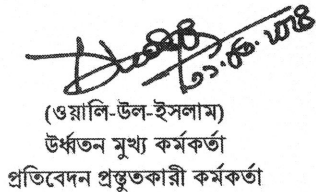 (ওয়ালি-উল-ইসলাম)
উর্ধ্বতন মুখ্য কর্মকর্তা
প্রতিবেদন প্রস্তুতকারী কর্মকর্তা